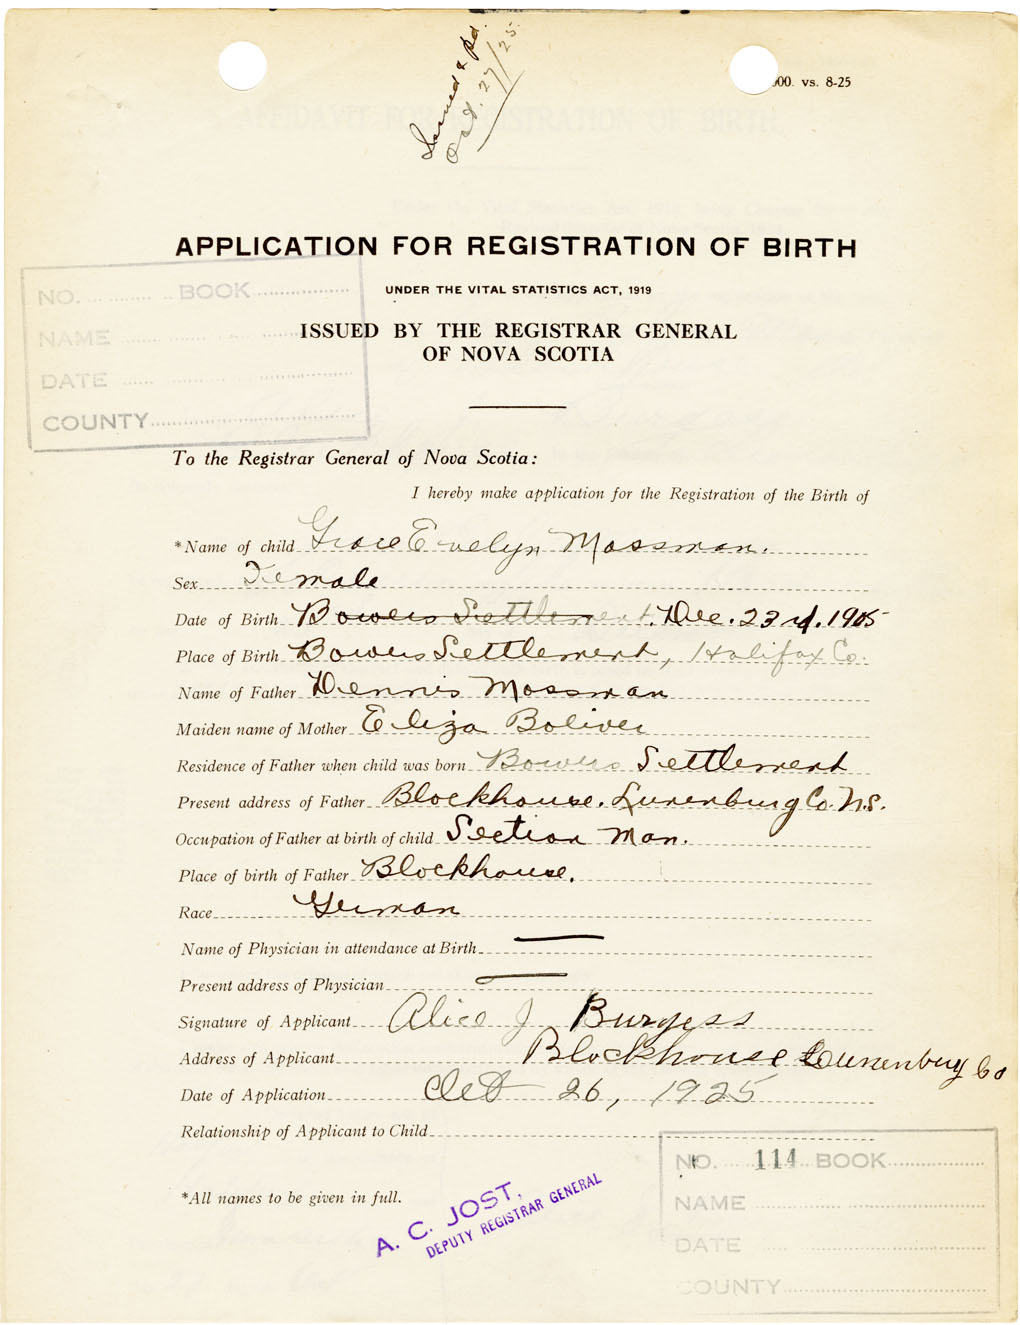 Issued & Pd.
Oct. 27/25.
000. vs. 8-25
APPLICATION FOR REGISTRATION OF BIRTH
UNDER THE VITAL STATISTICS ACT, 1919
ISSUED BY THE REGISTRAR GENERAL
OF NOVA SCOTIA
NO. BOOK
NAME
DATE
COUNTY
To the Registrar General of Nova Scotia:
I hereby make application for the Registration of the Birth of
*Name of child Grace Evelyn Mossman.
Sex Female
Date of Birth Bowers Settlement. Dec. 23rd. 1905
Place of Birth Bowers Settlement, Halifax Co.
Name of Father Dennis Mossman
Maiden name of Mother Eliza Boliver
Residence of Father when child was born Bowers Settlement
Present address of Father Blockhouse. Lunenburg Co. N.S.
Occupation of Father at birth of child Section Man.
Place of birth of Father Blockhouse.
Race German
Name of Physician in attendance at Birth —
Present address of Physician —
Signature of Applicant Alice J Burgess
Address of Applicant Blockhouse Lunenburg Co
Date of Application Oct 26, 1925
Relationship of Applicant to Child
*All names to be given in full.
A. C. JOST,
DEPUTY REGISTRAR GENERAL
NO. 114 BOOK
NAME
DATE
COUNTY